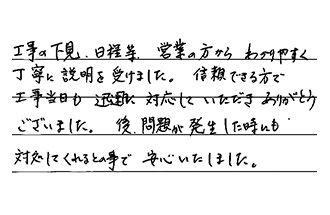 工事の下見、日程等、営業の方から わかりやすく
丁寧に説明を受けました。信頼できる方で
工事当日も 迅速に 対応して いただき ありがとう
ございました。 後、問題が発生した時にも
対応してくれるとの事で 安心いたしました。